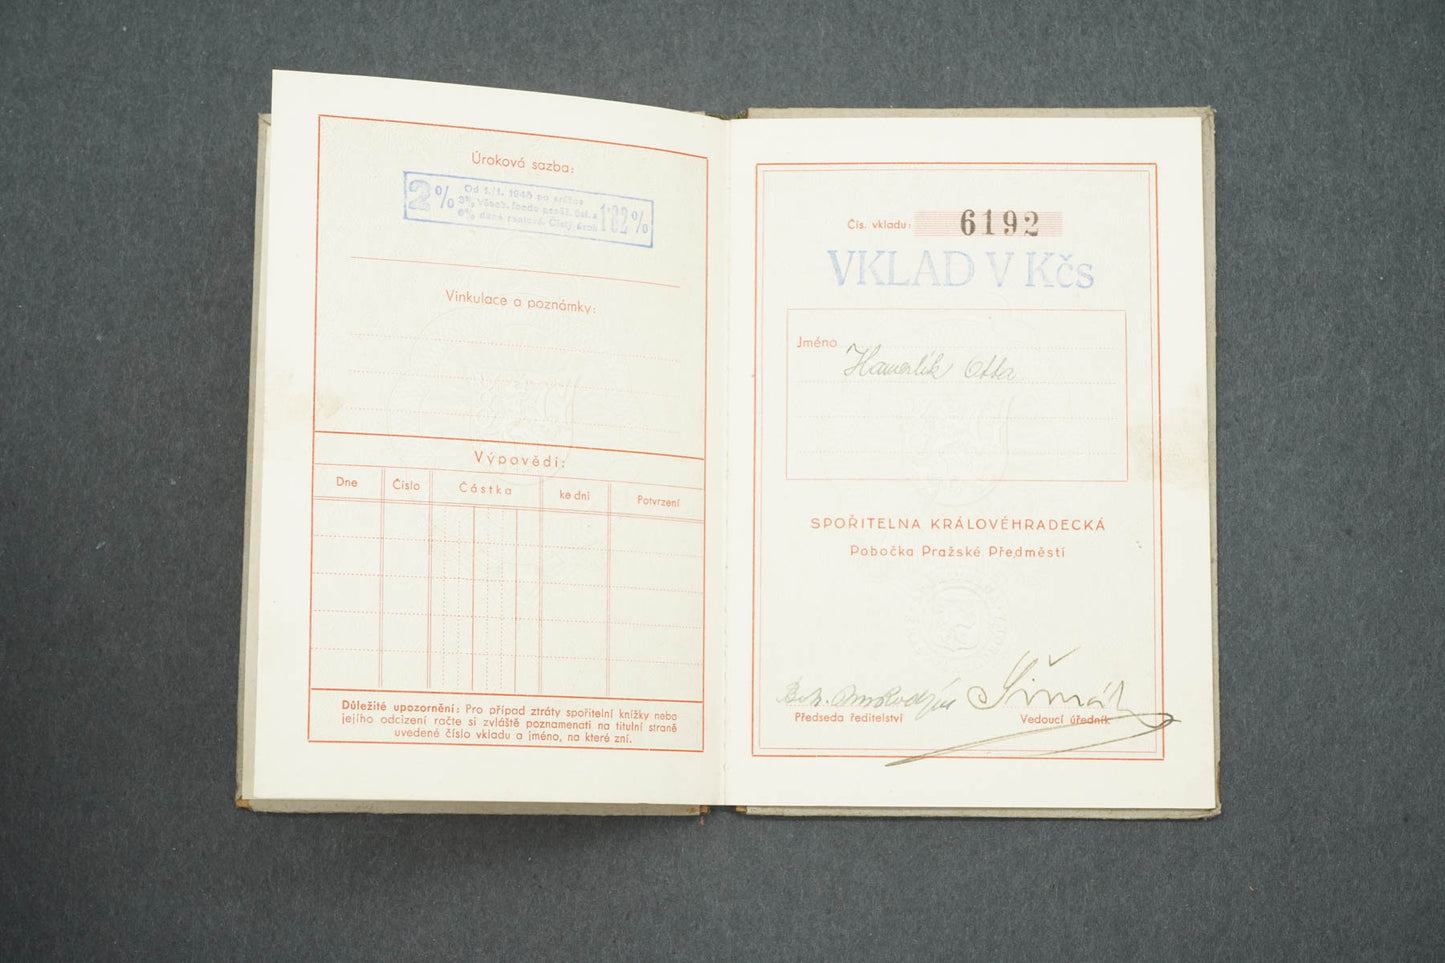 Úroková sazba:
2% Od 1./1. 1946 po srážce
3% Všeob. fondu peněž. úst. a
6% daně rentové. Čistý úrok 1'82%
Vinkulace a poznámky:
Výpovědi:
Dne Číslo Částka ke dni Potvrzení
Důležité upozornění: Pro případ ztráty spořitelní knížky nebo
jejího odcizení račte si zvláště poznamenati na titulní straně
uvedené číslo vkladu a jméno, na které zní.
Čís. vkladu: 6192
VKLAD V Kčs
Jméno
Hamerlík Otta
SPOŘITELNA KRÁLOVÉHRADECKÁ
Pobočka Pražské Předměstí
Šimák
Předseda ředitelství Vedoucí úředník